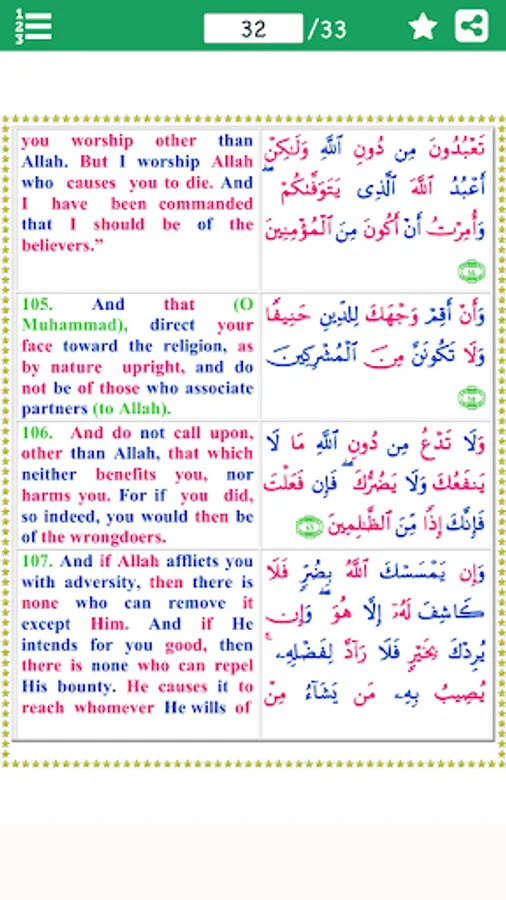 1
2
3
32 /33
you worship other than
Allah. But I worship Allah
who causes you to die. And
I have been commanded
that I should be of the
believers.”
تَعْبُدُونَ مِن دُونِ ٱللَّهِ وَلَٰكِنْ
أَعْبُدُ ٱللَّهَ ٱلَّذِى يَتَوَفَّىٰكُمْ ۖ
وَأُمِرْتُ أَنْ أَكُونَ مِنَ ٱلْمُؤْمِنِينَ
105. And that (O
Muhammad), direct your
face toward the religion, as
by nature upright, and do
not be of those who associate
partners (to Allah).
وَأَنْ أَقِمْ وَجْهَكَ لِلدِّينِ حَنِيفًا
وَلَا تَكُونَنَّ مِنَ ٱلْمُشْرِكِينَ
106. And do not call upon,
other than Allah, that which
neither benefits you, nor
harms you. For if you did,
so indeed, you would then be
of the wrongdoers.
وَلَا تَدْعُ مِن دُونِ ٱللَّهِ مَا لَا
يَنفَعُكَ وَلَا يَضُرُّكَ ۖ فَإِن فَعَلْتَ
فَإِنَّكَ إِذًا مِّنَ ٱلظَّٰلِمِينَ
107. And if Allah afflicts you
with adversity, then there is
none who can remove it
except Him. And if He
intends for you good, then
there is none who can repel
His bounty. He causes it to
reach whomever He wills of
وَإِن يَمْسَسْكَ ٱللَّهُ بِضُرٍّ فَلَا
كَاشِفَ لَهُۥٓ إِلَّا هُوَ ۖ وَإِن
يُرِدْكَ بِخَيْرٍ فَلَا رَآدَّ لِفَضْلِهِۦ ۚ
يُصِيبُ بِهِۦ مَن يَشَآءُ مِنْ